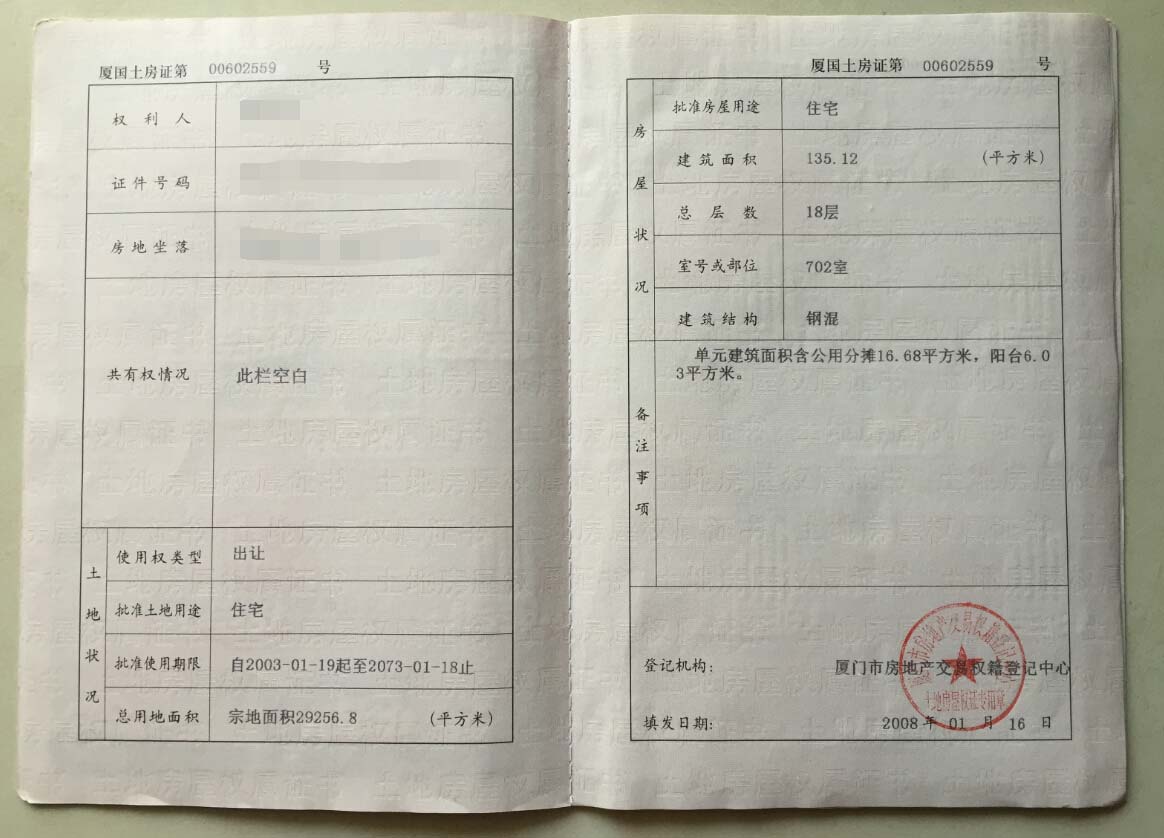 厦国土房证第 00602559 号
权利人
证件号码
房地坐落
共有权情况 此栏空白
土地状况
使用权类型 出让
批准土地用途 住宅
批准使用期限 自2003-01-19起至2073-01-18止
总用地面积 宗地面积29256.8 (平方米)
厦国土房证第 00602559 号
房屋状况
批准房屋用途 住宅
建筑面积 135.12 (平方米)
总层数 18层
室号或部位 702室
建筑结构 钢混
备注事项
单元建筑面积含公用分摊16.68平方米，阳台6.0
3平方米。
登记机构: 厦门市房地产交易权籍登记中心
填发日期: 2008 年 01 月 16 日
厦门市房地产交易权籍登记中心
土地房屋权证专用章
土地房屋权属证书